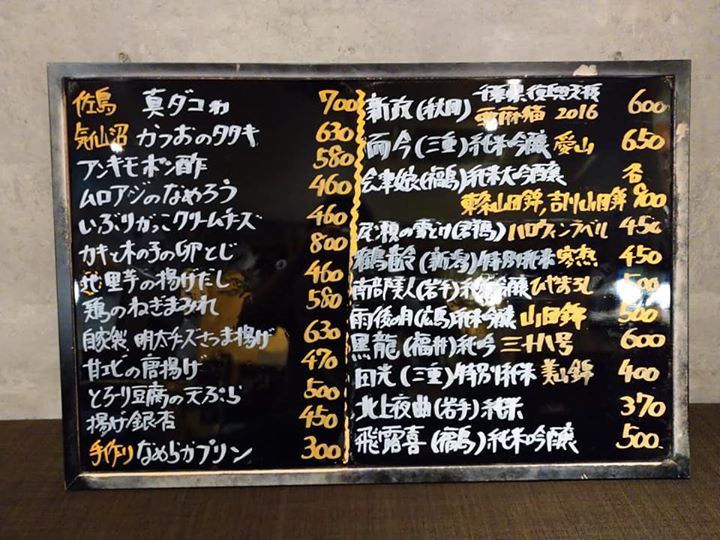 佐島 真ダコ 700
気仙沼 かつおのタタキ 630
アンキモポン酢 580
ムロアジのなめろう 460
いぶりがっこクリームチーズ 460
カキと木の子の卵とじ 800
里芋の揚げだし 460
鶏のねぎまみれ 580
自家製 明太チーズさつま揚げ 630
甘エビの唐揚げ 470
とろーり豆腐の天ぷら 500
揚げ銀杏 450
手作りなめらかプリン 300
新政(秋田) 亜麻猫 2016 600
而今(三重)純米吟醸 愛山 650
会津娘(福島)純米大吟醸
山田錦, 山田錦 各700
ハロウィンラベル 450
鶴齢(新潟)特別純米 寒熟 450
南部美人(岩手)純米吟醸 ひやおろし 500
雨後の月(広島)純米吟醸 山田錦 500
黒龍(福井)純吟 三十八号 600
田光(三重)特別純米 美山錦 400
北上夜曲(岩手)純米 370
飛露喜(福島)純米吟醸 500